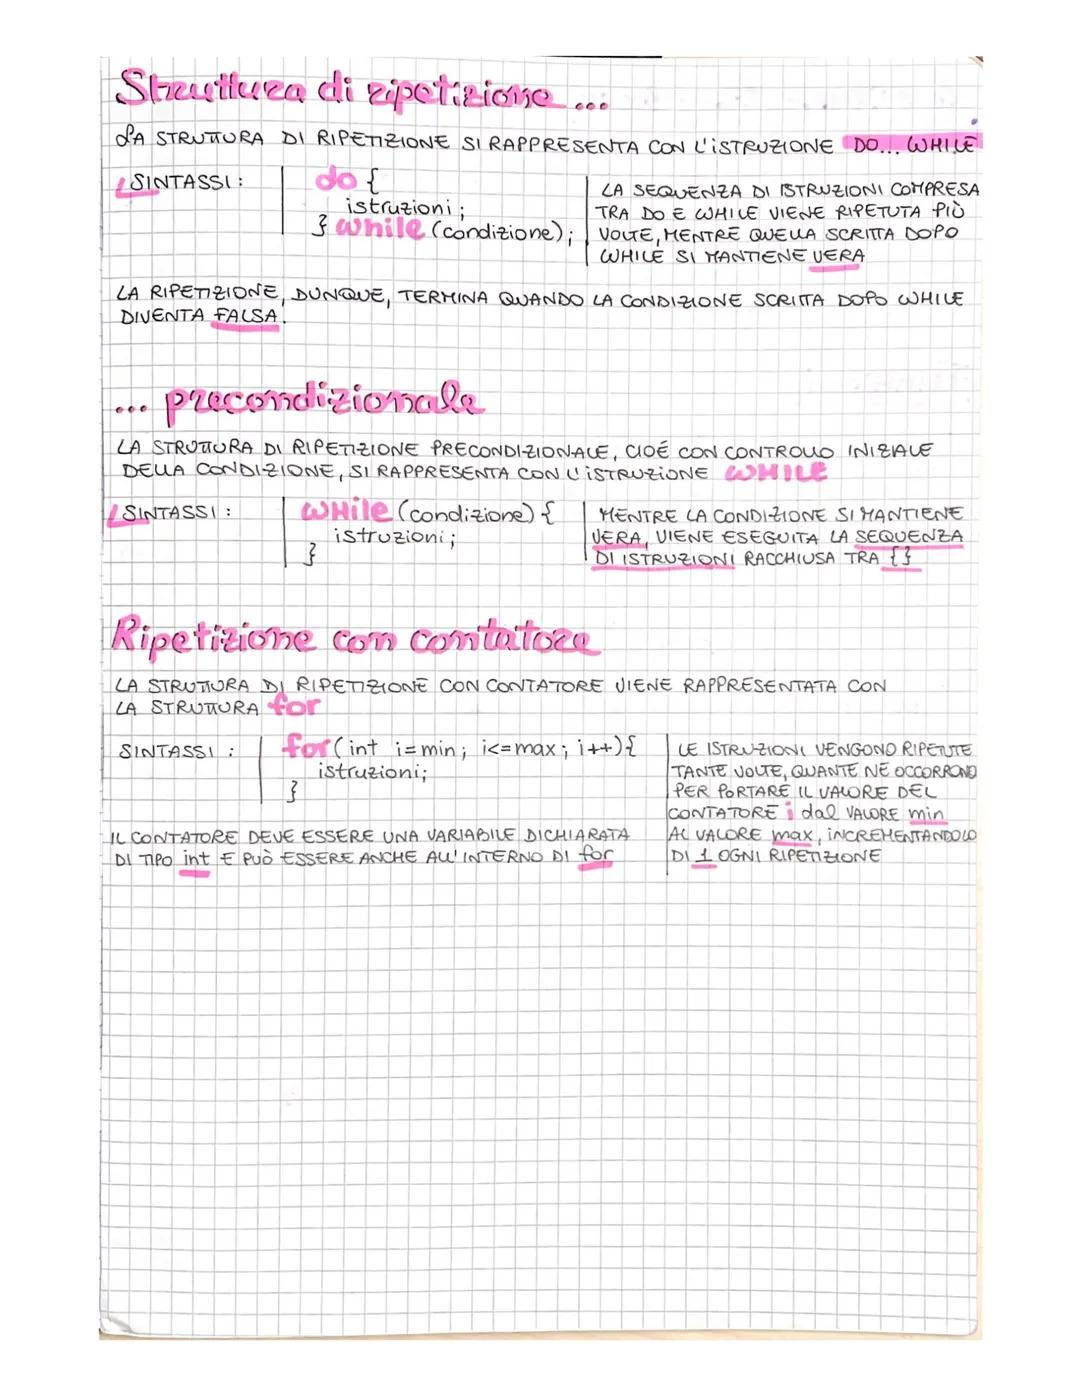 Struttura di ripetizione ...
LA STRUTTURA DI RIPETIZIONE SI RAPPRESENTA CON L'ISTRUZIONE DO... WHILE
SINTASSI :
do {
istruzioni ;
} while (condizione);
LA SEQUENZA DI ISTRUZIONI COMPRESA
TRA DO E WHILE VIENE RIPETUTA PIÙ
VOLTE, MENTRE QUELLA SCRITTA DOPO
WHILE SI MANTIENE VERA
LA RIPETIZIONE, DUNQUE, TERMINA QUANDO LA CONDIZIONE SCRITTA DOPO WHILE
DIVENTA FALSA.
... precondizionale
LA STRUTTURA DI RIPETIZIONE PRECONDIZIONALE, CIOÉ CON CONTROLLO INIZIALE
DELLA CONDIZIONE, SI RAPPRESENTA CON L'ISTRUZIONE WHILE
SINTASSI :
WHile (condizione) {
istruzioni ;
}
MENTRE LA CONDIZIONE SI MANTIENE
VERA, VIENE ESEGUITA LA SEQUENZA
DI ISTRUZIONI RACCHIUSA TRA {}
Ripetizione con contatore
LA STRUTTURA DI RIPETIZIONE CON CONTATORE VIENE RAPPRESENTATA CON
LA STRUTTURA for
SINTASSI :
for (int i=min; i<=max; i++){
istruzioni;
}
LE ISTRUZIONI VENGONO RIPETUTE
TANTE VOLTE, QUANTE NE OCCORRONO
PER PORTARE IL VALORE DEL
CONTATORE i dal VALORE min
AL VALORE max, INCREMENTANDOLO
DI 1 OGNI RIPETIZIONE
IL CONTATORE DEVE ESSERE UNA VARIABILE DICHIARATA
DI TIPO int E PUÒ ESSERE ANCHE ALL'INTERNO DI for